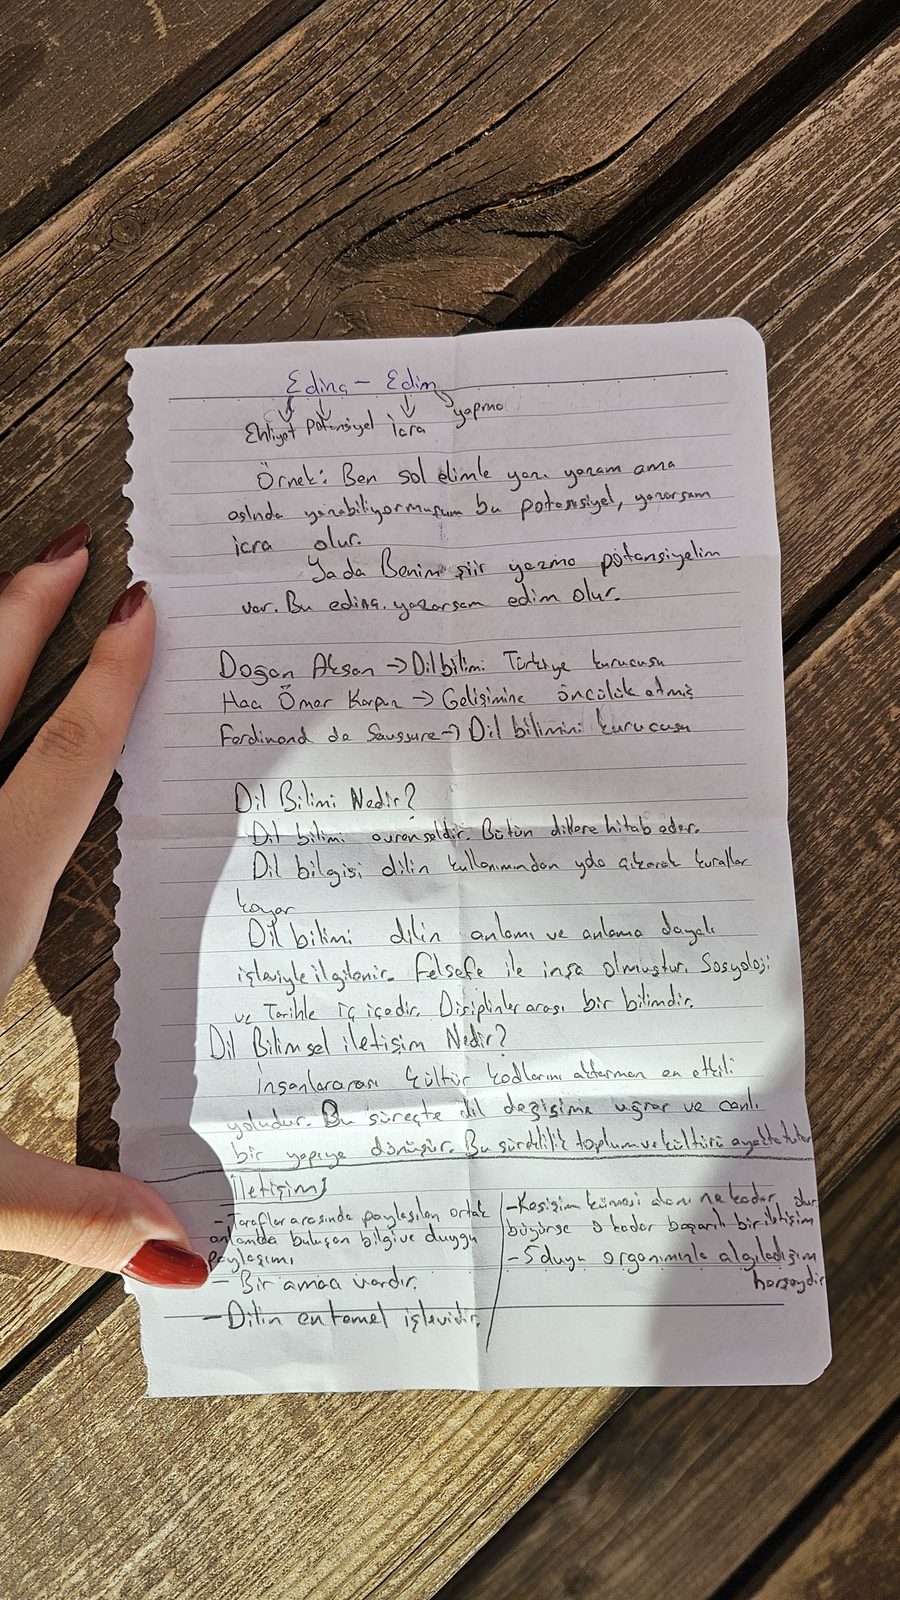 Edinç - Edim
Ehliyet potansiyel icra yapma
Örnek: Ben sol elimle yazı yazam ama
aslında yazabiliyormuşum bu potansiyel, yazarsam
icra olur.
Ya da Benim şiir yazma potansiyelim
var. Bu edinç. yazarsam edim olur.
Doğan Aksan → Dilbilimi Türkiye kurucusu
Hacı Ömer Karpuz → Gelişimine öncülük etmiş
Ferdinand de Saussure → Dil bilimini kurucusu
Dil Bilimi Nedir?
Dil bilimi evrenseldir. Bütün dillere hitab eder.
Dil bilgisi dilin kullanımından yola çıkarak kurallar
koyar
Dil bilimi dilin anlamı ve anlama dayalı
işleviyle ilgilenir. Felsefe ile inşa olmuştur. Sosyoloji
ve Tarihle iç içedir. Disiplinler arası bir bilimdir.
Dil Bilimsel iletişim Nedir?
İnsanlararası kültür kodlarını aktarman en etkili
yoludur. Bu süreçte dil değişime uğrar ve canlı
bir yapıya dönüşür. Bu süreklilik toplum ve kültürü ayakta tutar
İletişim
- Taraflar arasında paylaşılan ortak
anlamda buluşan bilgi ve duygu
paylaşımı
- Bir amacı vardır.
- Dilin en temel işlevidir.
- Kesişim kümesi alanı ne kadar
büyürse o kadar başarılı bir iletişim olur
- 5 duyu organımızla algıladığım
herşeydir